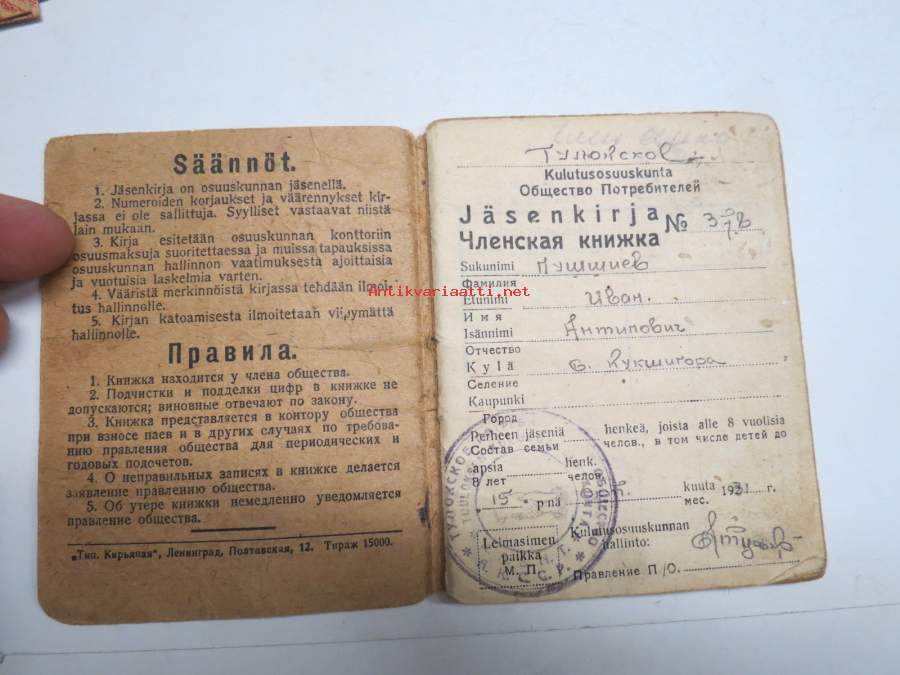 Säännöt.
1. Jäsenkirja on osuuskunnan jäsenellä.
2. Numeroiden korjaukset ja väärennykset kir-
jassa ei ole sallittuja. Syylliset vastaavat niistä
lain mukaan.
3. Kirja esitetään osuuskunnan konttoriin
osuusmaksuja suoritettaessa ja muissa tapauksissa
osuuskunnan hallinnon vaatimuksesta ajoittaisia
ja vuotuisia laskelmia varten.
4. Vääristä merkinnöistä kirjassa tehdään ilmoi-
tus hallinnolle.
5. Kirjan katoamisesta ilmoitetaah viipymättä
hallinnolle.
Правила.
1. Книжка находится у члена общества.
2. Подчистки и подделки цифр в книжке не
допускаются; виновные отвечают по закону.
3. Книжка представляется в контору общества
при взносе паев и в других случаях по требова-
нию правления общества для периодических и
годовых подсчетов.
4. О неправильных записях в книжке делается
заявление правлению общества.
5. Об утере книжки немедленно уведомляется
правление общества.
„Тип. Кирьяпая", Ленинград, Полтавская, 12. Тираж 15000.
Antikvariaatti.net
Тулокское
Kulutusosuuskunta
Общество Потребителей
Jäsenkirja
Членская книжка
№ 378
Sukunimi
Фамилия
Etunimi Иван.
Имя
Isännimi Антипович
Отчество
Kylä с. Кукшигора
Селение
Kaupunki
Город
Perheen jäseniä henkeä, joista alle 8 vuotisia
Состав семьи челов., в том числе детей до
apsia henk.
8 лет челов.
15 р-nа kuuta 1931 г.
мес.
Leimasimen
paikka
М. П.
Kulutusosuuskunnan
hallinto:
Правление П/О.